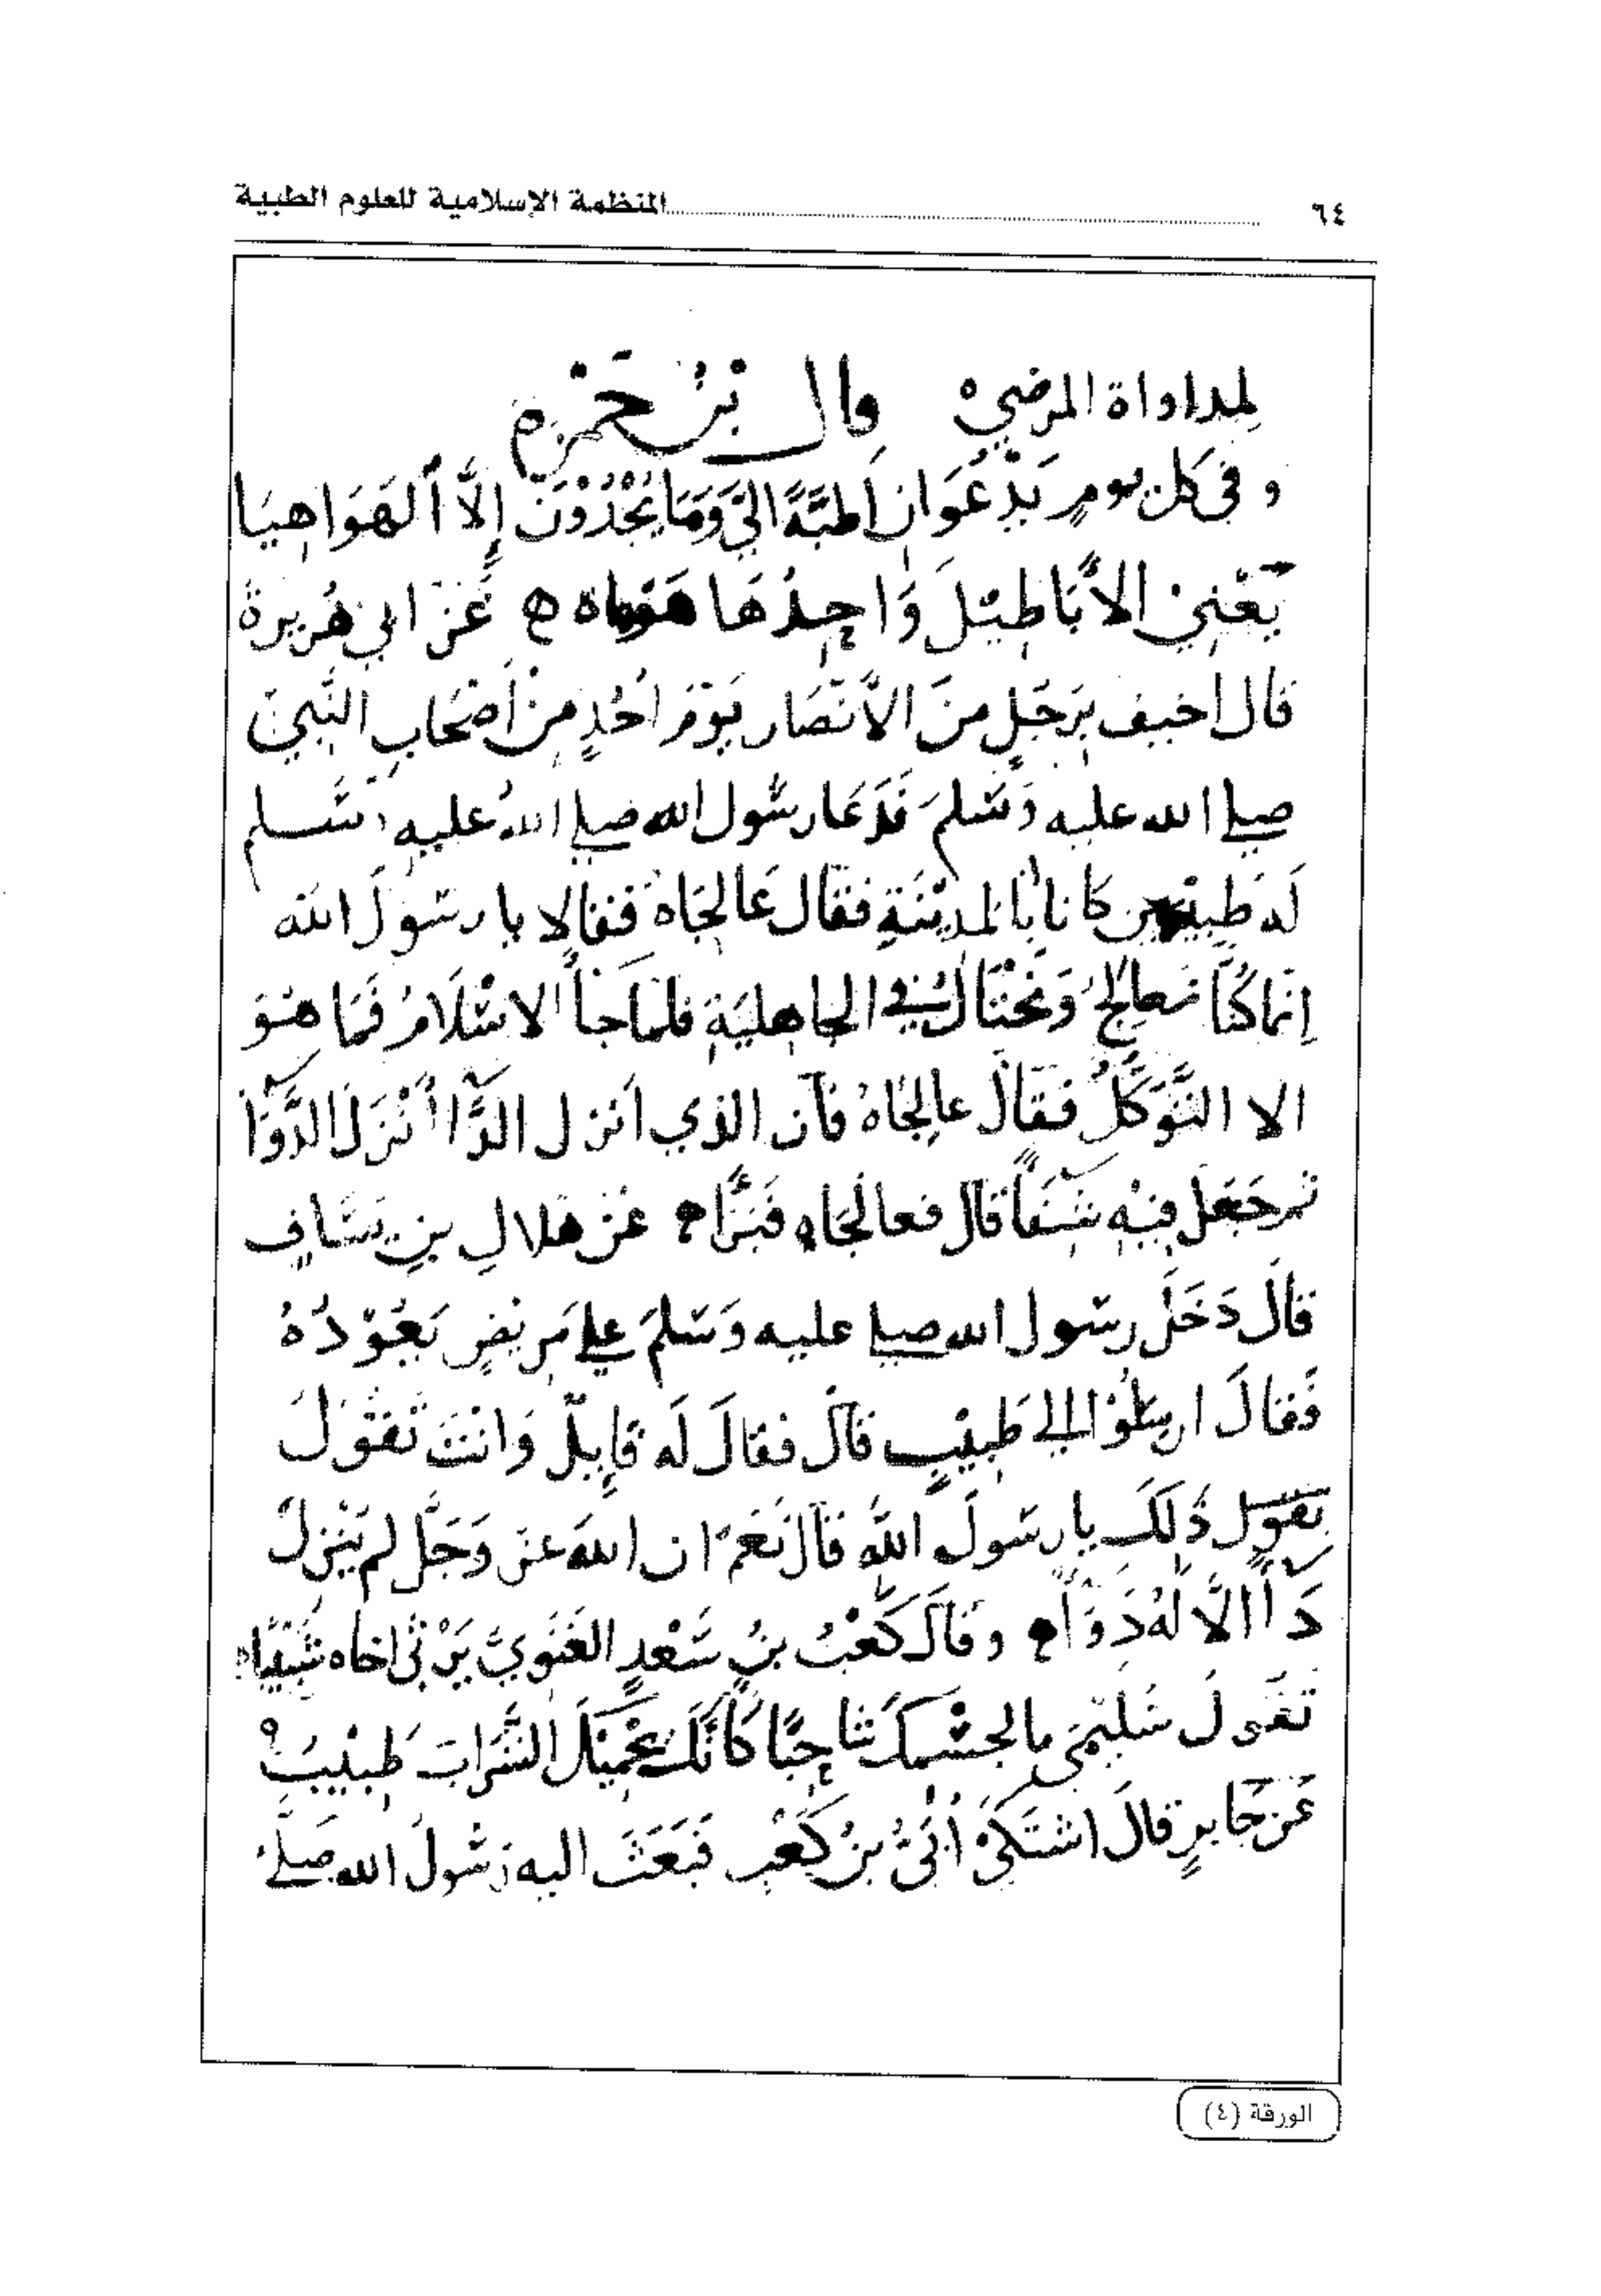 ٦٤ المنظمة الإسلامية للعلوم الطبية
لمداواة المرضي ه قال بن حمزه
و في كل يوم يدعوان اطبة الي وما يجدون إلا الهواهيا
يعني الأباطيل واحدها ه عن ابي هريرة
قال اخيف برجل من الأنصار يوم أحد من أصحاب النبي
صلي الله عليه وسلم فدعا رسول الله صلي الله عليه وسلم
له طبيبين كانا بالمدينة فقال عالجاه فقالا يا رسول الله
انما كنا نعالج ونحتال في الجاهلية فلما جا الاسلام فما هو
الا التوكل فقال عالجاه فان الذي انزل الدا أنزل الدوا
ثم جعل فيه شفا قال فعالجاه فبرا ه عن هلال بن يساف
قال دخل رسول الله صلي عليه وسلم علي مريض يعوده
فقال ارسلوا الي طبيب قال فقال له قايل وانت تقول
يقول ذلك يا رسول الله قال نعم ان الله عز وجل لم ينزل
دا الا له دوا ه وقال كعب بن سعد الغنوي يرثي اخاه شبيبا ه
تقول سليمى ما لجسمك شاحبا كانك يحميك الشراب طبيب
عن جابر قال اشتكى أبي بن كعب فبعث اليه رسول الله صلى
الورقة (٤)